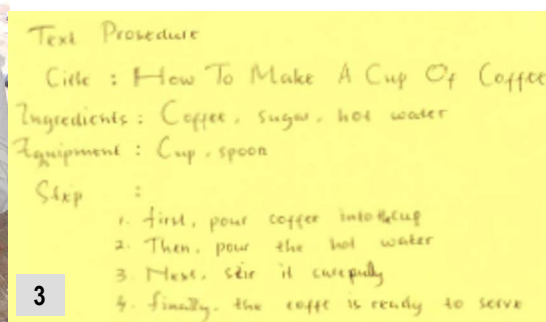 Text Prosedure
Citle : How To Make A Cup Of Coffee
Ingredients : Coffee, sugar, hot water
Equipment : Cup, spoon
Step :
1. first, pour coffee into the cup
2. Then, pour the hot water
3. Next, stir it carepuly
4. finally, the coffe is ready to serve
3